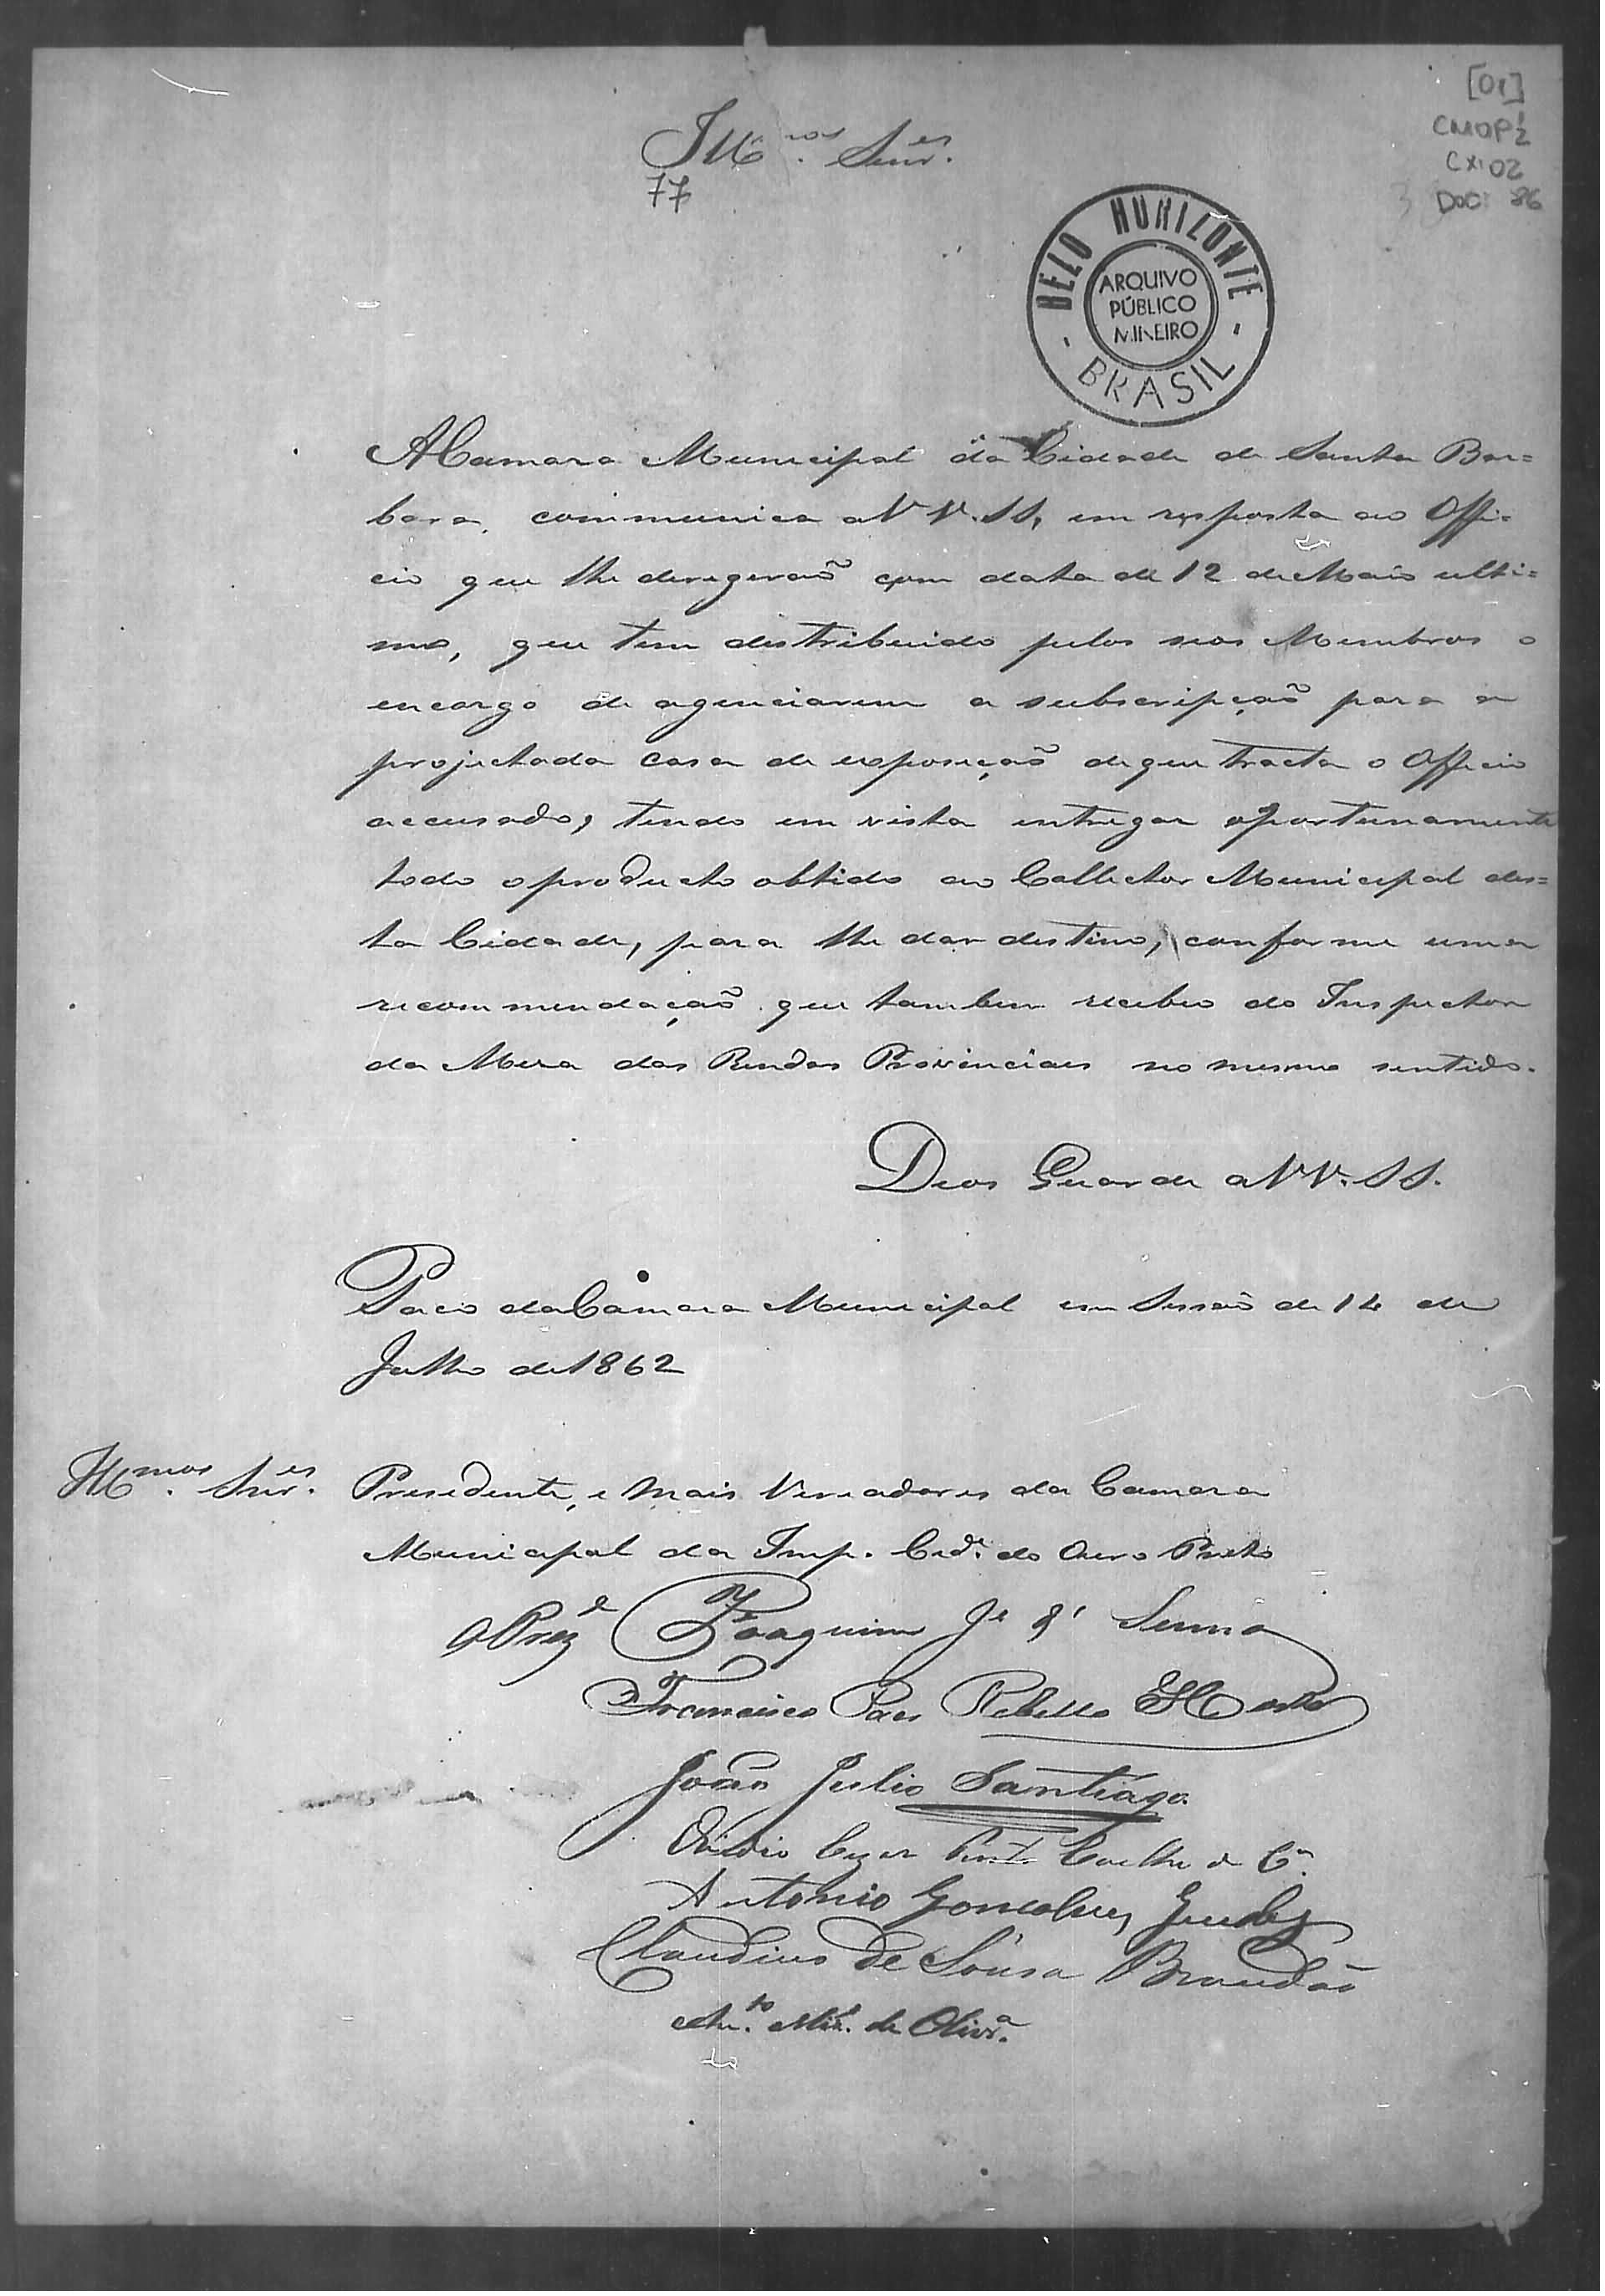 [01]
CMOP 1/2
CX: 02
DOC: 86
Ill.mos Snr.es
77
BELO HORIZONTE
ARQUIVO
PÚBLICO
MINEIRO
BRASIL
A Camara Municipal da Cidade de Santa Bar=
bara, communica a VV. SS, em resposta ao Offi=
cio que lhe deregeraõ com data de 12 de Maio ulti=
mo, que tem distribuido pelos seos Membros o
encargo de agenciarem a subscripçaõ para a
projectada casa de exposiçaõ de que tracta o Officio
accusado, tendo em vista entregar oportunamente
todo o producto obtido ao Collector Municipal des=
ta Cidade, para lhe dar destino, conforme uma
recommendaçaõ que tambem recebeo do Inspector
da Mesa das Rendas Provinciaes no mesmo sentido.
Deos Guarde a VV. SS.
Paço da Camara Municipal em Sessaõ de 14 de
Julho de 1862
Ill.mos Snr.es Presidente, e mais Vereadores da Camara
Municipal da Imp. Cid.e do Ouro Preto
O Prez.e Joaquim J.e d' Senna
Francisco Paes Rebello Horta
João Julio Santiago
Ovidio Cezar Coelho da C.a
Antonio Goncalves
Claudino de Sousa Brandão
Ant.o de Olivr.a